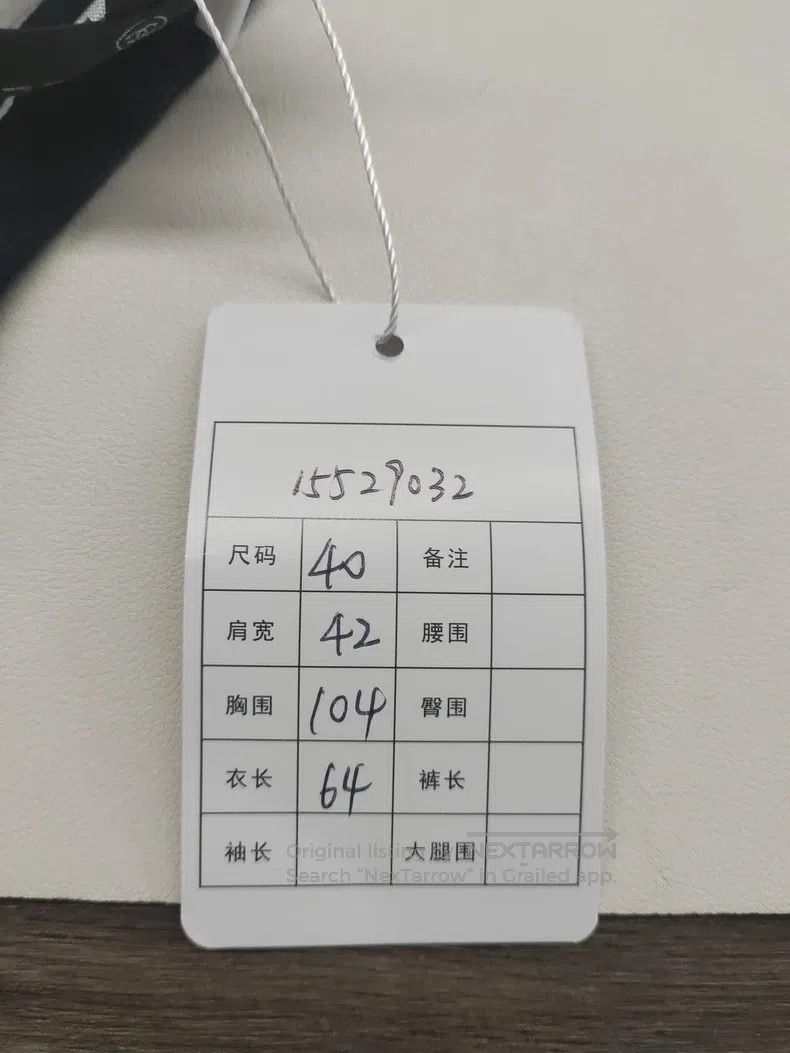 15529032
尺码 40 备注
肩宽 42 腰围
胸围 104 臀围
衣长 64 裤长
袖长 大腿围
Original listing NEXTARROW
Search "NexTarrow" in Grailed app.